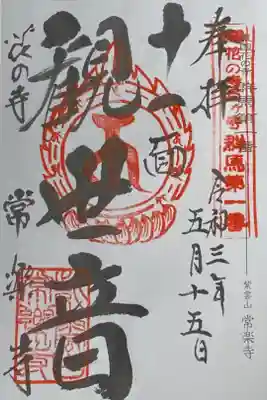 奉拝
令和三年
五月十五日
十一面
観世音
花の寺
常楽寺
紫雲山 常楽寺